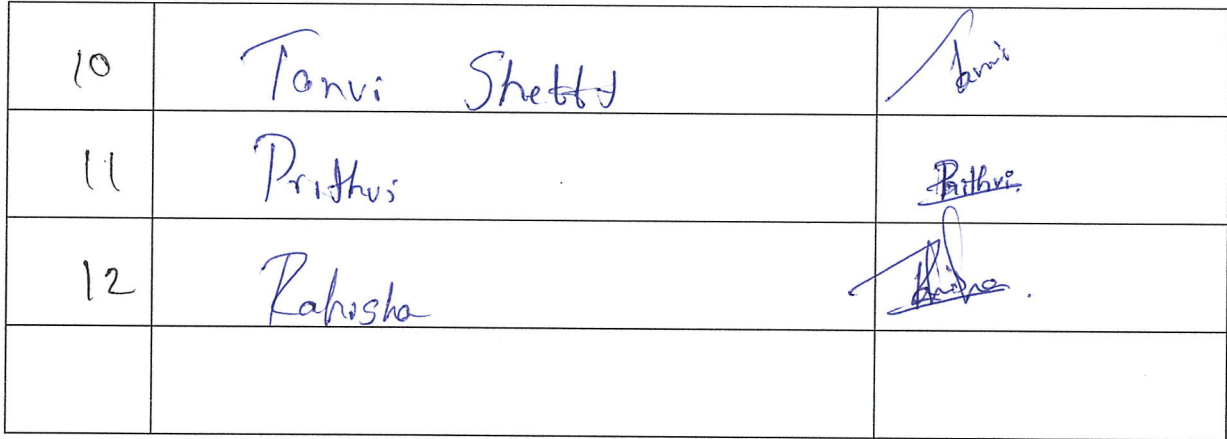 10 Tanvi Shetty Tanvi
11 Prithvi Prithvi
12